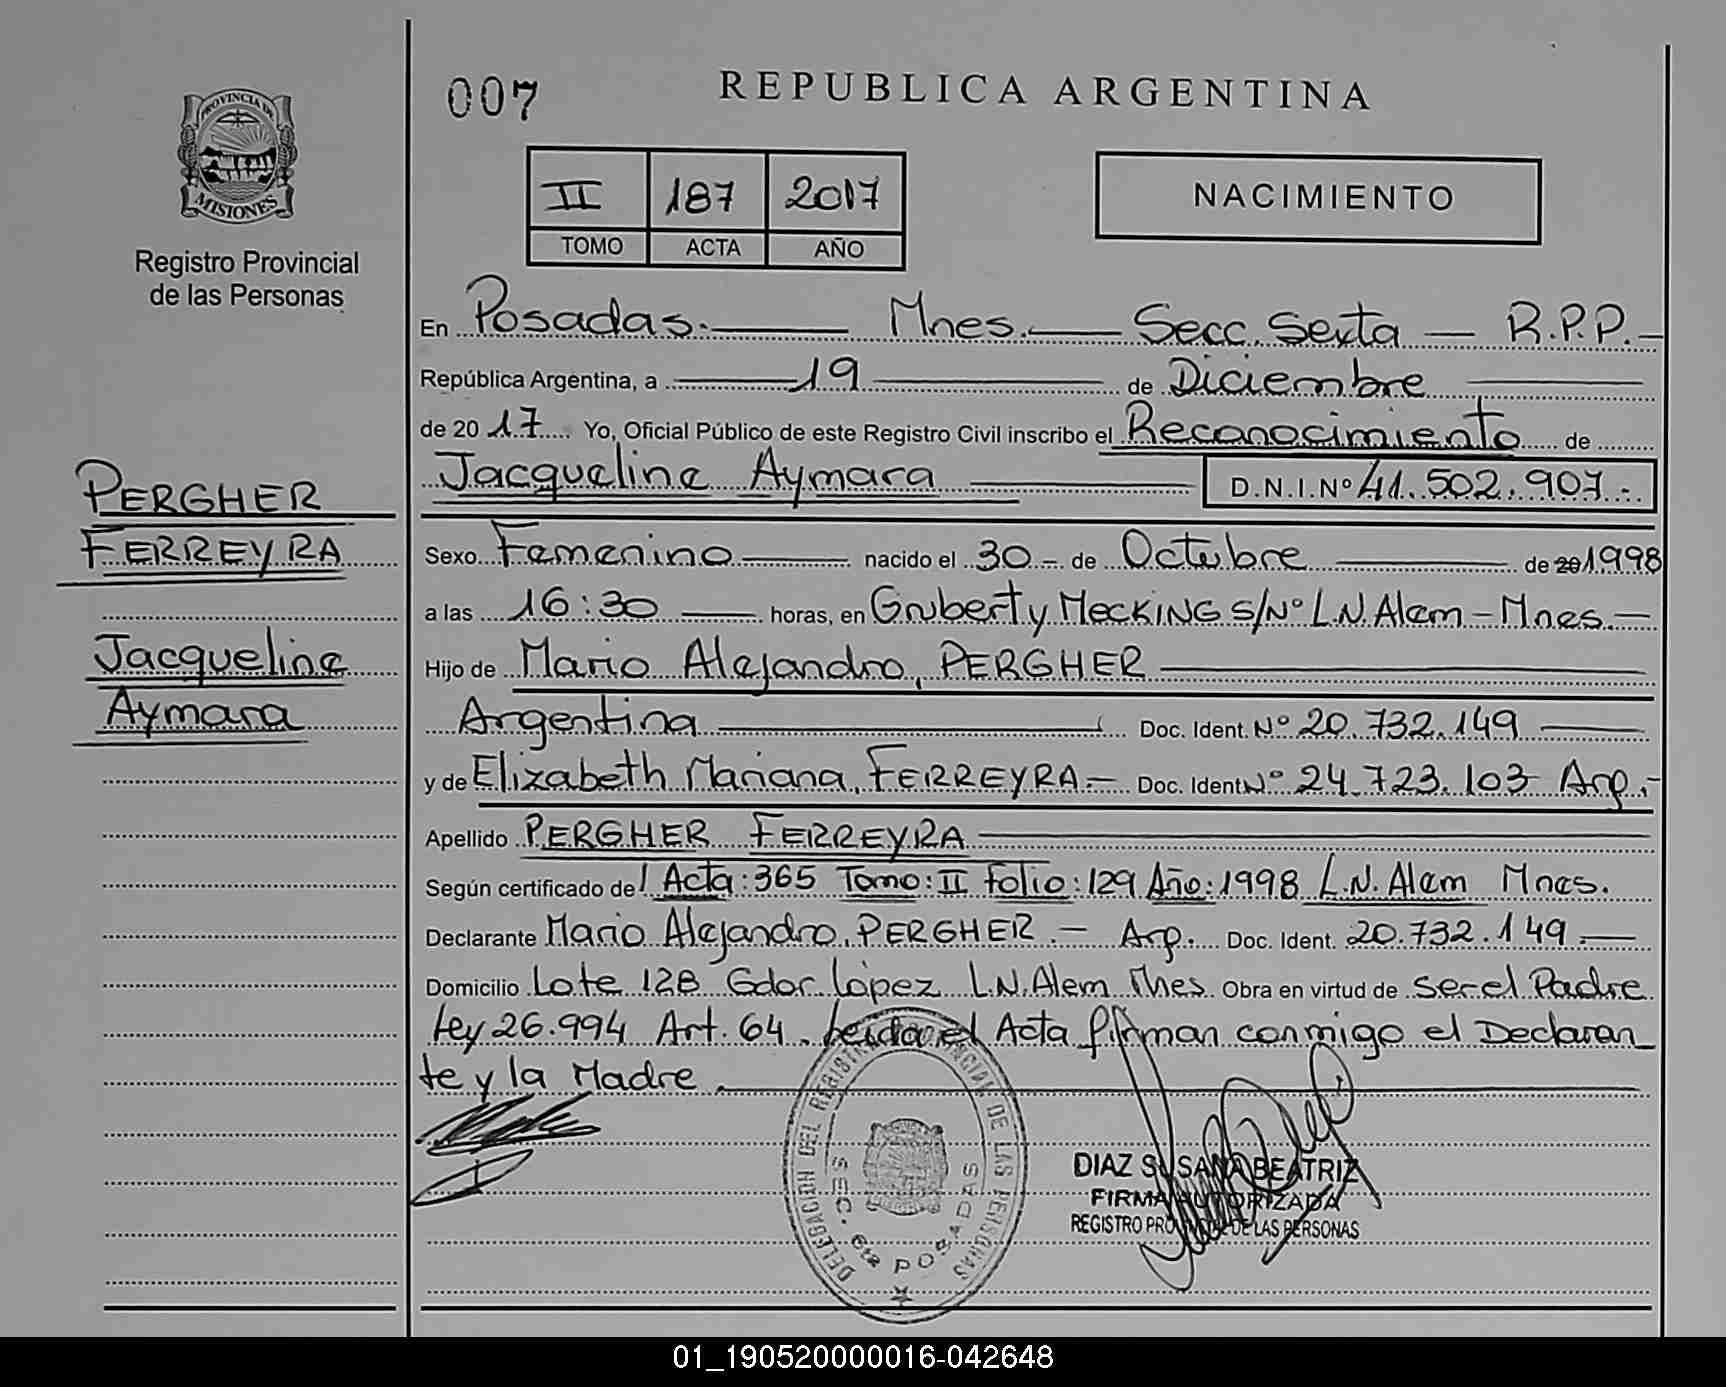 007
REPUBLICA ARGENTINA
PROVINCIA DE
MISIONES
Registro Provincial
de las Personas
II 187 2017
TOMO ACTA AÑO
NACIMIENTO
En Posadas.- Mnes.- Secc. Sexta - R.P.P.-
República Argentina, a 19 de Diciembre
de 2017 Yo, Oficial Público de este Registro Civil inscribo el Reconocimiento de
Jacqueline Aymara D.N.I.Nº 41.502.907.-
PERGHER
FERREYRA
Jacqueline
Aymara
Sexo Femenino nacido el 30- de Octubre de 20 1998
a las 16:30 horas, en Grubert y MecKING S/Nº L.N.Alem - Mnes.-
Hijo de Mario Alejandro, PERGHER
Argentina Doc. Ident. Nº 20.732.149
y de Elizabeth Mariana, FERREYRA.- Doc. Ident Nº 24.723.103 Arg.-
Apellido PERGHER FERREYRA
Según certificado de Acta: 365 Tomo: II Folio: 129 Año: 1998 L.N. Alem Mnes.
Declarante Mario Alejandro, PERGHER.- Arg. Doc. Ident. 20.732.149.-
Domicilio Lote 128 Gdor. López L.N.Alem Mnes Obra en virtud de ser el Padre
Ley 26.994 Art. 64. Leida el Acta firman conmigo el Declaran_
te y la Madre.
DELEGACION DEL REGISTRO PROVINCIAL DE LAS PERSONAS
SEC. 6ta POSADAS
DIAZ SUSANA BEATRIZ
FIRMA AUTORIZADA
REGISTRO PROVINCIAL DE LAS PERSONAS
01_190520000016-042648